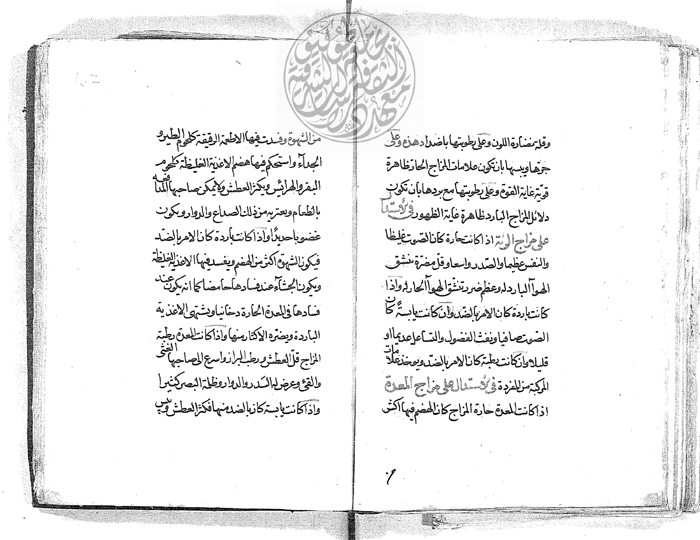 وقلة نضارة اللون وعلى رطوبتها باضداد هذه وعلى
حرها ويبسها بان تكون علامات المزاج الحار ظاهرة
قوية غاية القوة وعلى رطوبتها مع بردها بان تكون
دلائل المزاج البارد ظاهرة غاية الظهور في الاستدلال
على مزاج الرية اذا كانت حارة كان الصوت غليظا
والنفس عظيما والصدر واسعا وقل مضرة تنشق
الهوآ البارد له وعظم ضرر تنشق الهوآ الحار له واذا
كانت باردة كان الامر بالضد وان كانت يابسة كان
الصوت صافيا ونفث الفضول والتساعل عديما او
قليلا وان كانت رطبة كان الامر بالضد ويوخذ علامات
المركبة من المفردة في الاستدلال على مزاج المعدة
اذا كانت المعدة حارة المزاج كان الهضم فيها اكثر
من الشهوة وفسدت فيها الاطعمة الرقيقة كلحوم الطير و
الجدآء واستحكم فيها هضم الاغذية الغليظة كلحوم
البقر والهرائس ويكثر العطش ولا يمكن صاحبها المدافعة
بالطعام ويعتريه من ذلك الصداع والدوار ويكون
غضوبا حديدا واذا كانت باردة كان الامر بالضد
فيكون الشهوة اكثر من الهضم ويفسد فيها الاغذية الغليظة
ويكون الجشآء عند فسادها حامضا كما انه يكون عند
فسادها في المعدة الحارة دخانيا ويشتهى الاغذية
الباردة ويضره الاكثار منها واذا كانت المعدة رطبة
المزاج قل العطش ورطب البراز واسرع الى صاحبها الغثى
والقيء وعرض له السدر والدوار وظلمة البصر كثيرا
واذا كانت يابسة كان بالضد منها فكثر العطش ويبس